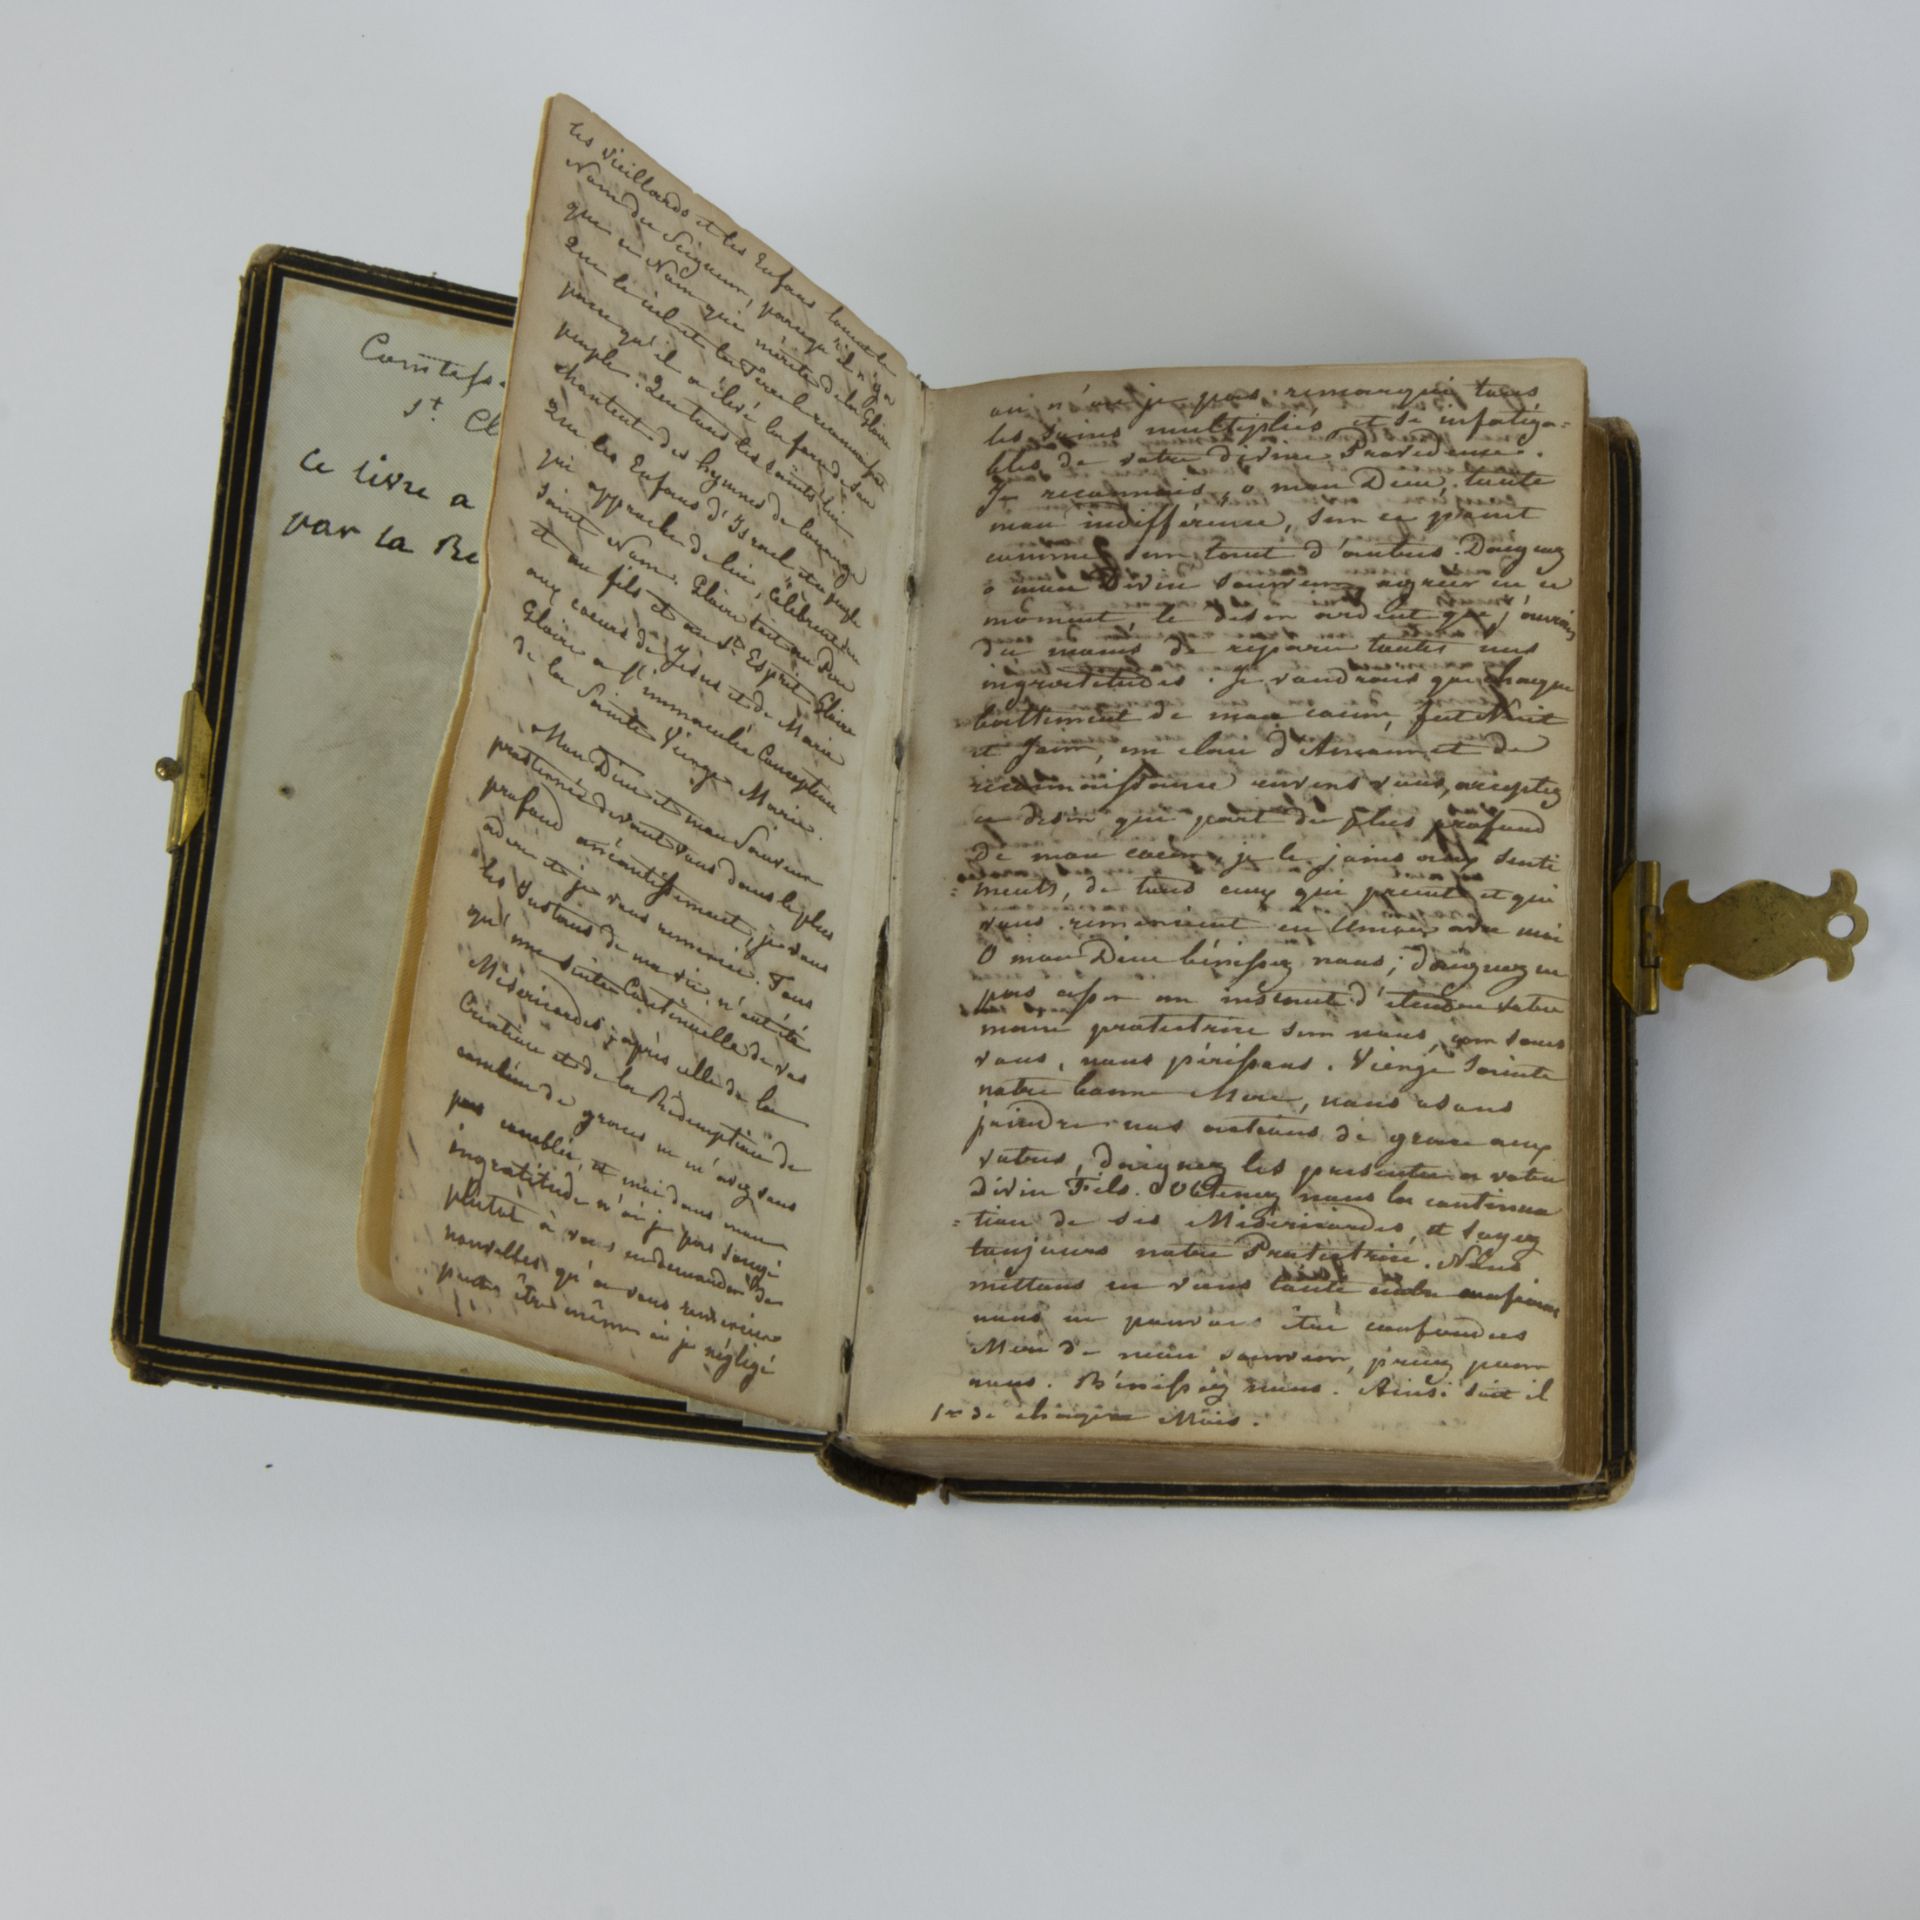 Comtesse
St. Cl
Ce livre a
par la Re
les vieillards et les Enfans louent le
Nom du Seigneur, parcequ'il n'y a
que ce Nom qui mérite de la Gloire
Que le ciel et la Terre le reconnaisse
parce qu'il a élevé la force de son
peuple. Que tous les saints lui
chantent des hymnes de louange
Que les Enfans d'Israel et le peuple
qui approche de lui, Célèbrent son
Saint Nom. Gloire soit au Père
et au fils et au St. Esprit Gloire
aux coeurs de Jesus et de Marie
Gloire a l'immaculée Conception
de la Sainte Vierge Marie.
Mon Dieu et mon Sauveur
prosternée devant vous dans le plus
profond anéantissement, je vous
adore et je vous remercie. Tous
les Instans de ma vie n'ont été
qu'une suite Continuelle de vos
Miséricordes; après celle de la
Création et de la Rédemption de
combien de graces ne m'avez vous
pas comblée, et moi dans mon
ingratitude n'ai je pas songé
plutot à vous en demander de
nouvelles qu'a vous remercier
peut être même ai je négligé
ou n'ai je pas remarqué tous
les soins multipliés et si infatiga=
bles de votre divine Providence.
Je reconnais, o mon Dieu, toute
mon indifférence, sur ce point
comme sur tout d'autres. Daignez
o mon Divin Sauveur agréer en ce
moment, le desir ardent que j'aurais
du moins de reparer toutes mes
ingratitudes. Je voudrais que chaque
battement de mon coeur, fut Nuit
et Jour, un élan d'Amour et de
reconnaissance envers vous, acceptez
ce desir qui part du plus profond
de mon coeur, je le joins aux senti
=ments, de tous ceux qui prient et qui
vous remercient en Union avec moi
O mon Dieu bénissez nous; daignez ne
pas cesser un instant d'étendre votre
main protectrice sur nous, car sans
vous, nous périssons. Vierge Sainte
notre bonne Mere, nous osons
joindre nos actions de grace aux
votres, daignez les presenter a votre
divin Fils. Obtenez nous la continua
=tion de ses Miséricordes, et soyez
toujours notre Protectrice. Nous
mettons en vous toute notre confiance
nous ne pouvons être confondus
Mère de mon sauveur, priez pour
nous. Bénissez nous. Ainsi soit il
1er de chaque Mois.